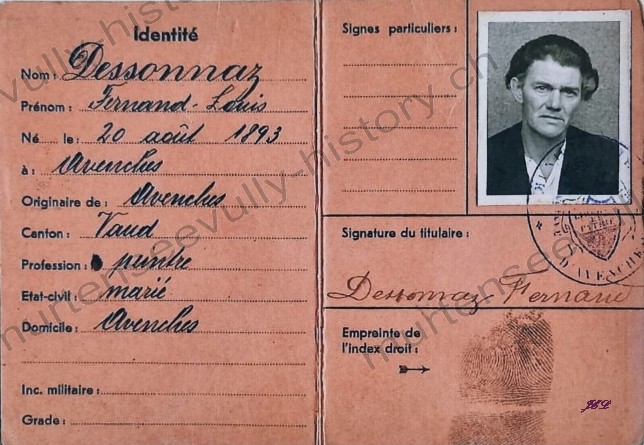 Identité
Nom: Dessonnaz
Prénom: Fernand-Louis
Né le: 20 août 1893
à: Avenches
Originaire de: Avenches
Canton: Vaud
Profession: peintre
Etat-civil: marié
Domicile: Avenches
Inc. militaire:
Grade:
Signes particuliers:
Signature du titulaire:
Dessonnaz Fernand
Empreinte de
l'index droit:
murtenseevully-history.ch